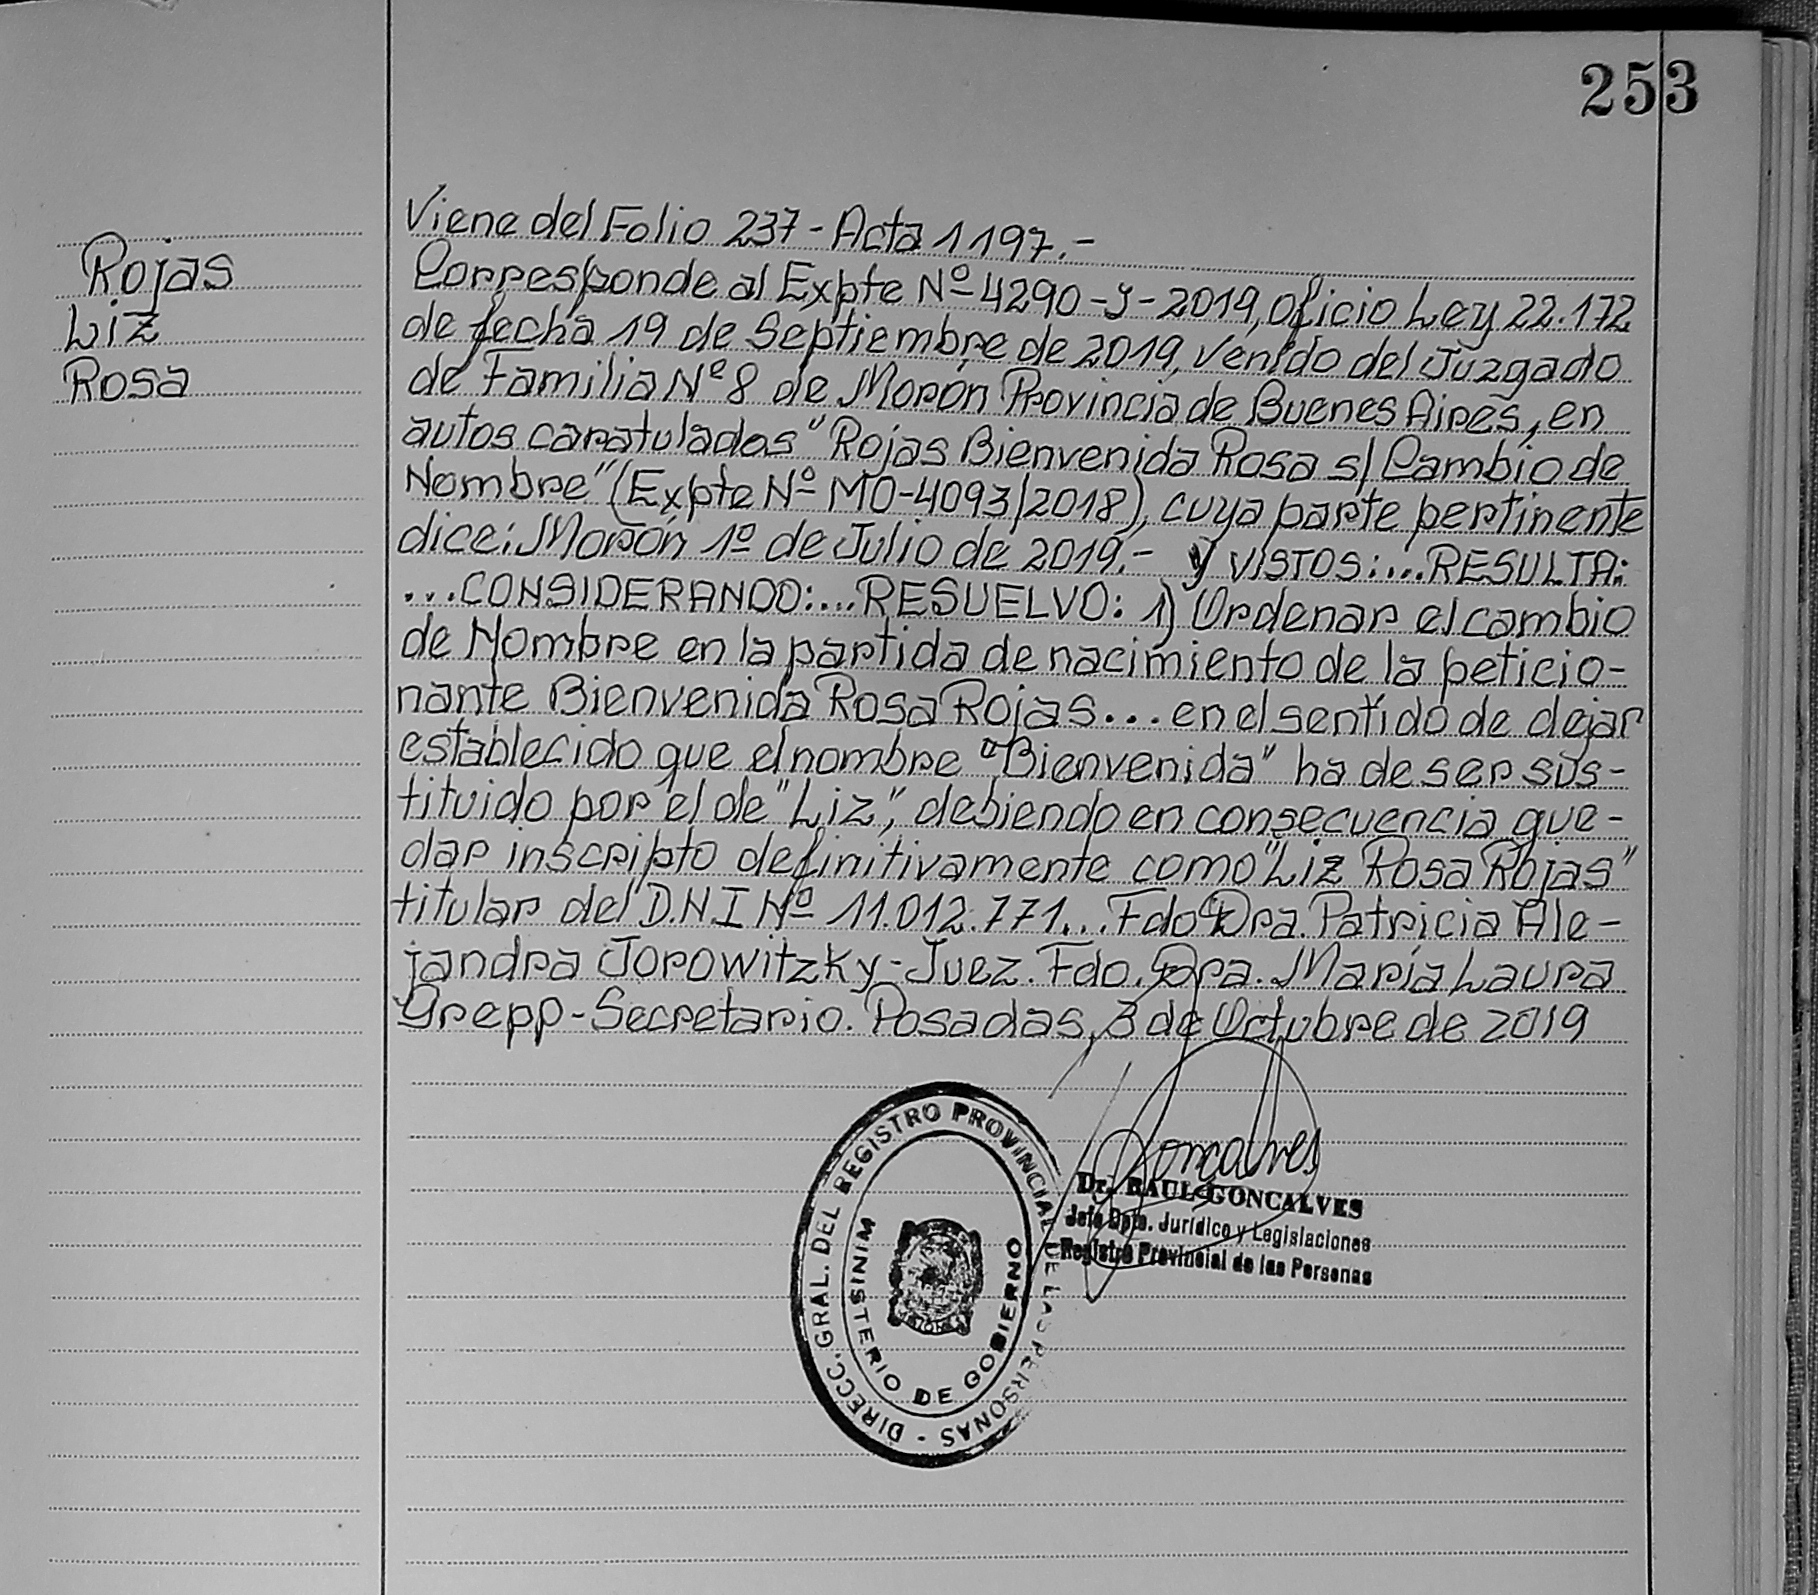 253
Rojas
Liz
Rosa
Viene del Folio 237 - Acta 1197.-
Corresponde al Expte Nº 4290-J-2019, oficio Ley 22.172
de fecha 19 de Septiembre de 2019, venido del Juzgado
de Familia Nº 8 de Morón Provincia de Buenos Aires, en
autos caratulados "Rojas Bienvenida Rosa s/ Cambio de
Nombre" (Expte Nº MO-4093/2018), cuya parte pertinente
dice: Morón 1º de Julio de 2019.- Y VISTOS:...RESULTA:
...CONSIDERANDO:...RESUELVO: 1) Ordenar el cambio
de Nombre en la partida de nacimiento de la peticio-
nante Bienvenida Rosa Rojas... en el sentido de dejar
establecido que el nombre "Bienvenida" ha de ser sus-
tituido por el de "Liz", debiendo en consecuencia que-
dar inscripto definitivamente como "Liz Rosa Rojas"
titular del D.N.I Nº 11.012.771... Fdo Dra. Patricia Ale-
jandra Jorowitzky-Juez. Fdo. Dra. María Laura
Grepp-Secretario. Posadas, 3 de Octubre de 2019
Goncalves
Dr. RAUL GONCALVES
Jefe Dpto. Jurídico y Legislaciones
Registro Provincial de las Personas
DIRECC. GRAL. DEL REGISTRO PROVINCIAL DE LAS PERSONAS -
MINISTERIO DE GOBIERNO